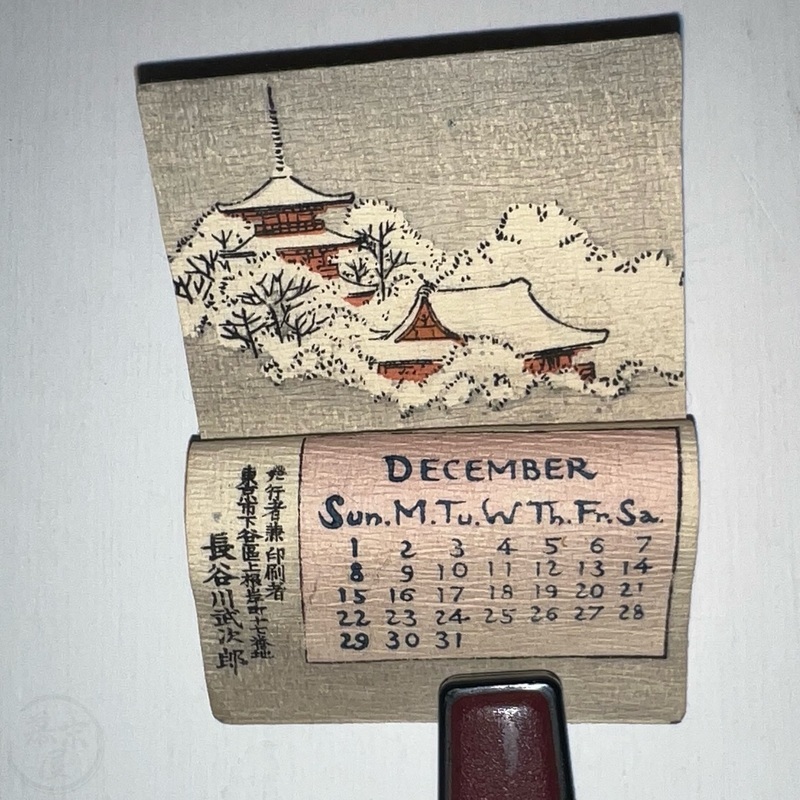 DECEMBER
Sun. M. Tu. W Th. Fr. Sa.
1 2 3 4 5 6 7
8 9 10 11 12 13 14
15 16 17 18 19 20 21
22 23 24 25 26 27 28
29 30 31
發行者兼印刷者
東京市下谷區上根岸町十七番地
長谷川武次郎